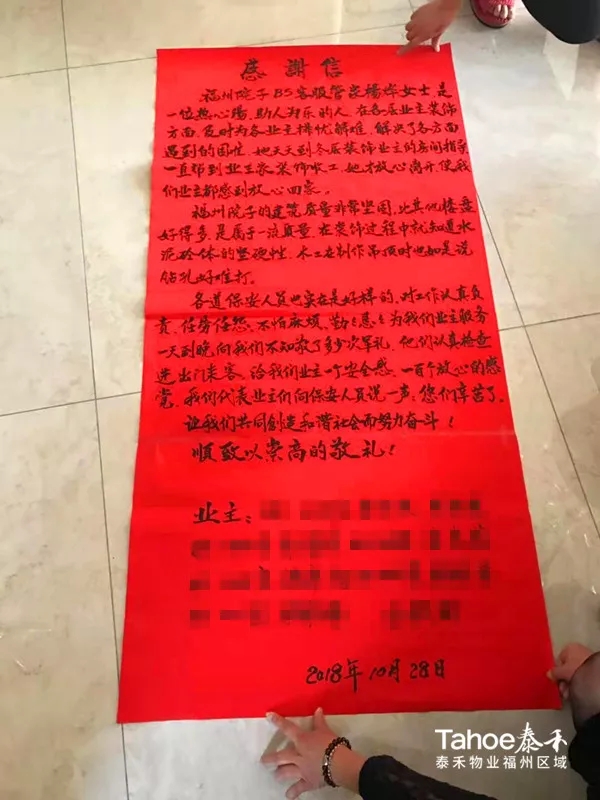 感謝信
福州院子B5客服管家杨烨女士是
一位热心腸、助人为乐的人,在各层业主装饰
方面,及时为各业主排忧解难,解决了各方面
遇到的困难。她天天到各层装饰业主的房间指导
一直帮到业主家装饰收工,她才放心离开,使我
们业主都感到放心回家。
福州院子的建筑质量非常坚固,比其他楼盘
好得多,是属于一流质量,在装饰过程中就知道水
泥砼体的坚硬性,木工在制作吊顶时也如是说
钻孔好难打。
各道保安人员也实在是好样的,对工作认真负
责、任劳任怨、不怕麻烦、勤勤恳恳为我们业主服务
一天到晚,向我们不知敬了多少次军礼,他们认真检查
进出门来客,给我们业主一个安全感,一百个放心的感
觉,我们代表业主们向保安人员说一声:您们辛苦了。
让我们共同创造和谐社会而努力奋斗!
顺致以崇高的敬礼!
业主:
2018年10月28日
Tahoe泰禾
泰禾物业福州区域